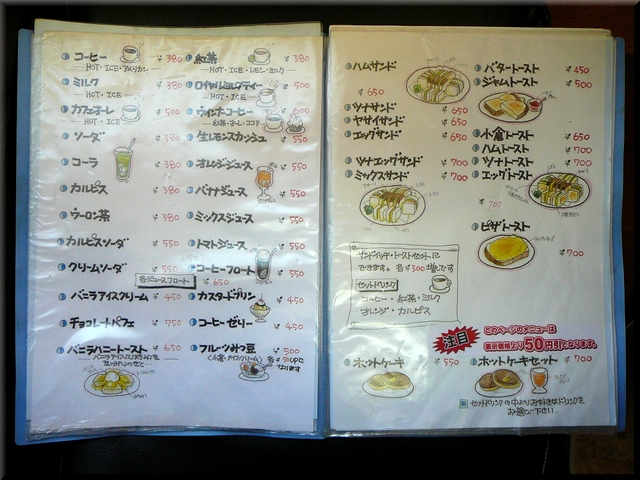 コーヒー ¥380
HOT・ICE・アメリカン
ミルク ¥380
HOT・ICE
カフェオーレ ¥380
HOT・ICE
ソーダ ¥380
コーラ ¥380
カルピス ¥380
ウーロン茶 ¥380
カルピスソーダ ¥550
クリームソーダ ¥550
バニラアイスクリーム ¥450
チョコレートパフェ ¥750
バニラハニートースト ¥650
紅茶 ¥380
HOT・ICE・レモン・ミルク
ロイヤルミルクティー
HOT・ICE
ウィンナーコーヒー
紅茶・オーレ・ココア
生レモンスカッシュ ¥550
オレンジジュース ¥550
バナナジュース ¥550
ミックスジュース ¥550
トマトジュース ¥550
コーヒーフロート ¥550
各ジュースフロート ¥650
カスタードプリン ¥450
コーヒーゼリー ¥450
フルーツみつ豆 ¥500
(小倉・アイスクリーム) 各¥50UPに
なります
ハムサンド
¥650
ツナサンド ¥650
ヤサイサンド ¥650
エッグサンド ¥650
ツナエッグサンド ¥700
ミックスサンド ¥700
サンドイッチ・トーストセットに
できます。各¥300増です
セットドリンク
コーヒー・紅茶・ミルク
オレンジ・カルピス
ホットケーキ ¥550
バタートースト ¥450
ジャムトースト ¥500
小倉トースト ¥500
ハムトースト ¥700
ツナトースト ¥700
エッグトースト
¥700
ピザトースト
¥700
注目
このページのメニューは
表示価格より50円引となります。
ホットケーキセット ¥700
セットドリンクの中よりお好きなドリンクを
お選び下さい